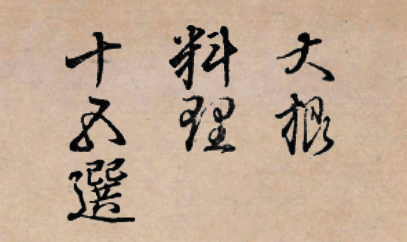 大根
料理
十五選